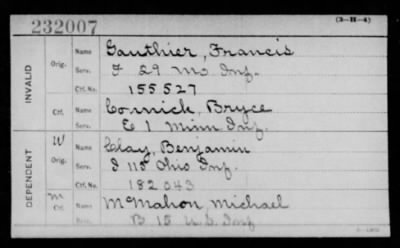 232007 (3-H-4)
INVALID
Orig. Name Gauthier, Francis
Serv. F 29 Mo Inf.
Ctf. No. 155527
Ctf. Name Cornick, Bryce
Serv. E 1 Minn Inf.
DEPENDENT
W Orig. Name Clay, Benjamin
Serv. I 115 Ohio Inf.
Ctf. No. 182043
m Ctf. Name McMahon, Michael
B 15 U.S. Inf